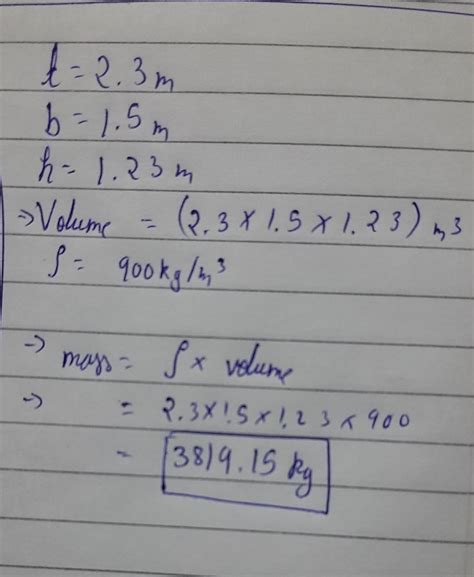 l = 2.3 m
b = 1.5 m
h = 1.23 m
→ Volume = (2.3 × 1.5 × 1.23) m³
ρ = 900 kg/m³
→ mass = ρ × volume
→ = 2.3 × 1.5 × 1.23 × 900
= 3819.15 kg